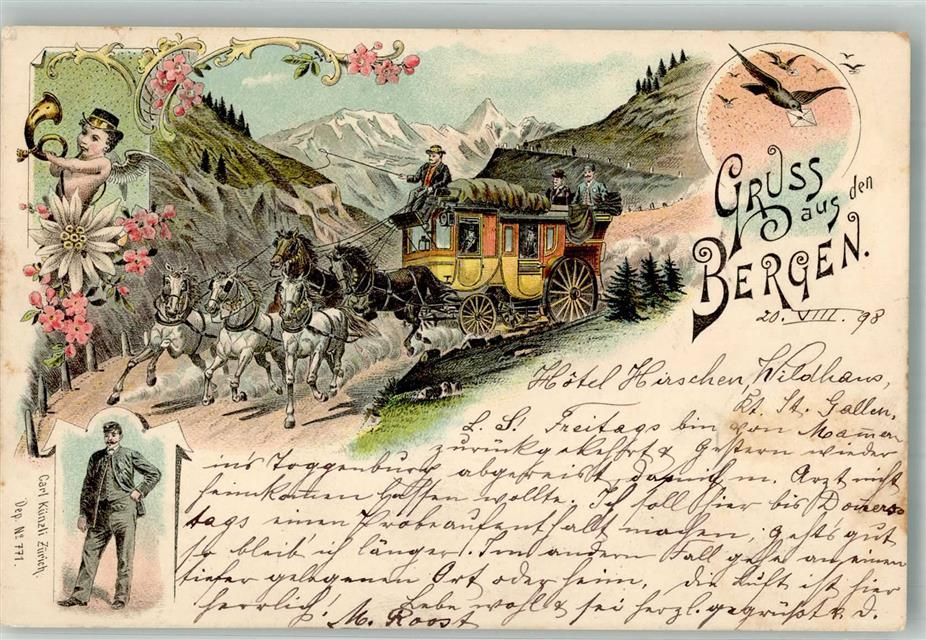 GRUSS
aus den
BERGEN.
20. VIII. 98
Hôtel Hirschen, Wildhaus,
Kt. St. Gallen.
L. S! Freitags bin von Mammern
zurückgekehrt & gestern wieder
in's Toggenburg abgereist, da mich m. Arzt nicht
heimkommen lassen wollte. Ich soll hier bis Donners-
tags einen Probeaufenthalt machen, geht's gut
so bleib' ich länger. Im andern Fall gehe an einen
tiefer gelegenen Ort oder heim, die Luft ist hier
herrlich! Lebe wohl & sei herzl. gegrüßt v. d.
M. Roost
Carl Künzli Zürich.
Dep. No. 771.